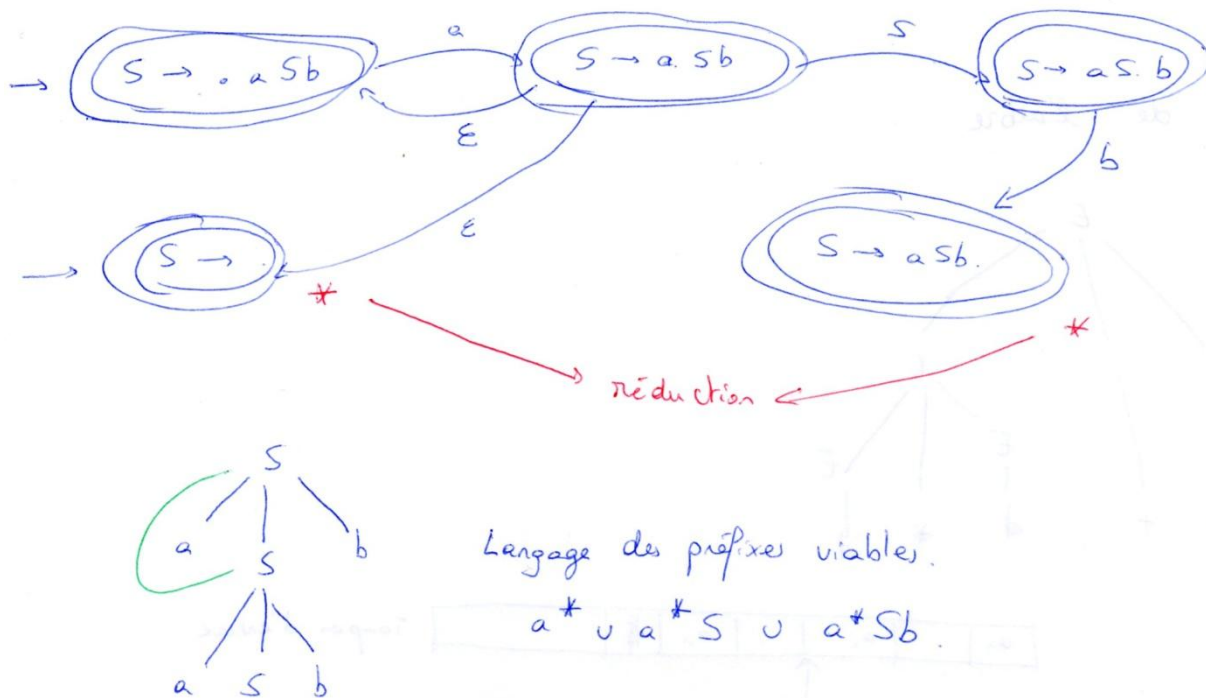 a
S
S → . a Sb
S → a. Sb
S → a S. b
ε
b
ε
S → .
S → a Sb.
*
*
réduction
S
a S b
a S b
Langage des préfixes viables.
a* ∪ a* S ∪ a* Sb.